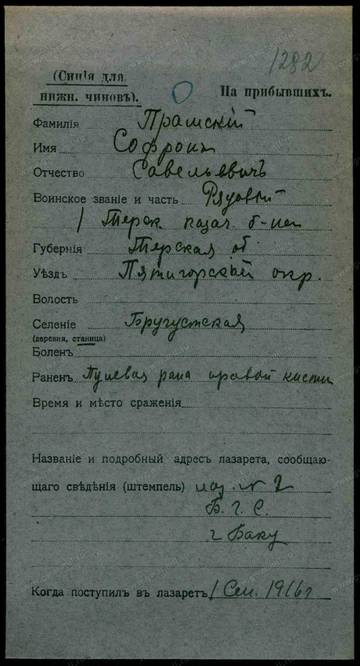 1282
(Синія для
нижн. чиновъ).
На прибывшихъ.
Фамилія Прамскій
Имя Софронъ
Отчество Савельевичъ
Воинское званіе и часть Рядовой
1 Терск. казач. б-на
Губернія Терская об
Уѣздъ Пятигорскій окр.
Волость
Селеніе Бургустская
(деревня, станица)
Боленъ
Раненъ Пулевая рана правой кисти
Время и мѣсто сраженія
Названіе и подробный адресъ лазарета, сообщаю-
щаго свѣдѣнія (штемпель) лаз. № 2
Б. Г. С.
г Баку
Когда поступилъ въ лазаретъ 1 Сен. 1916 г